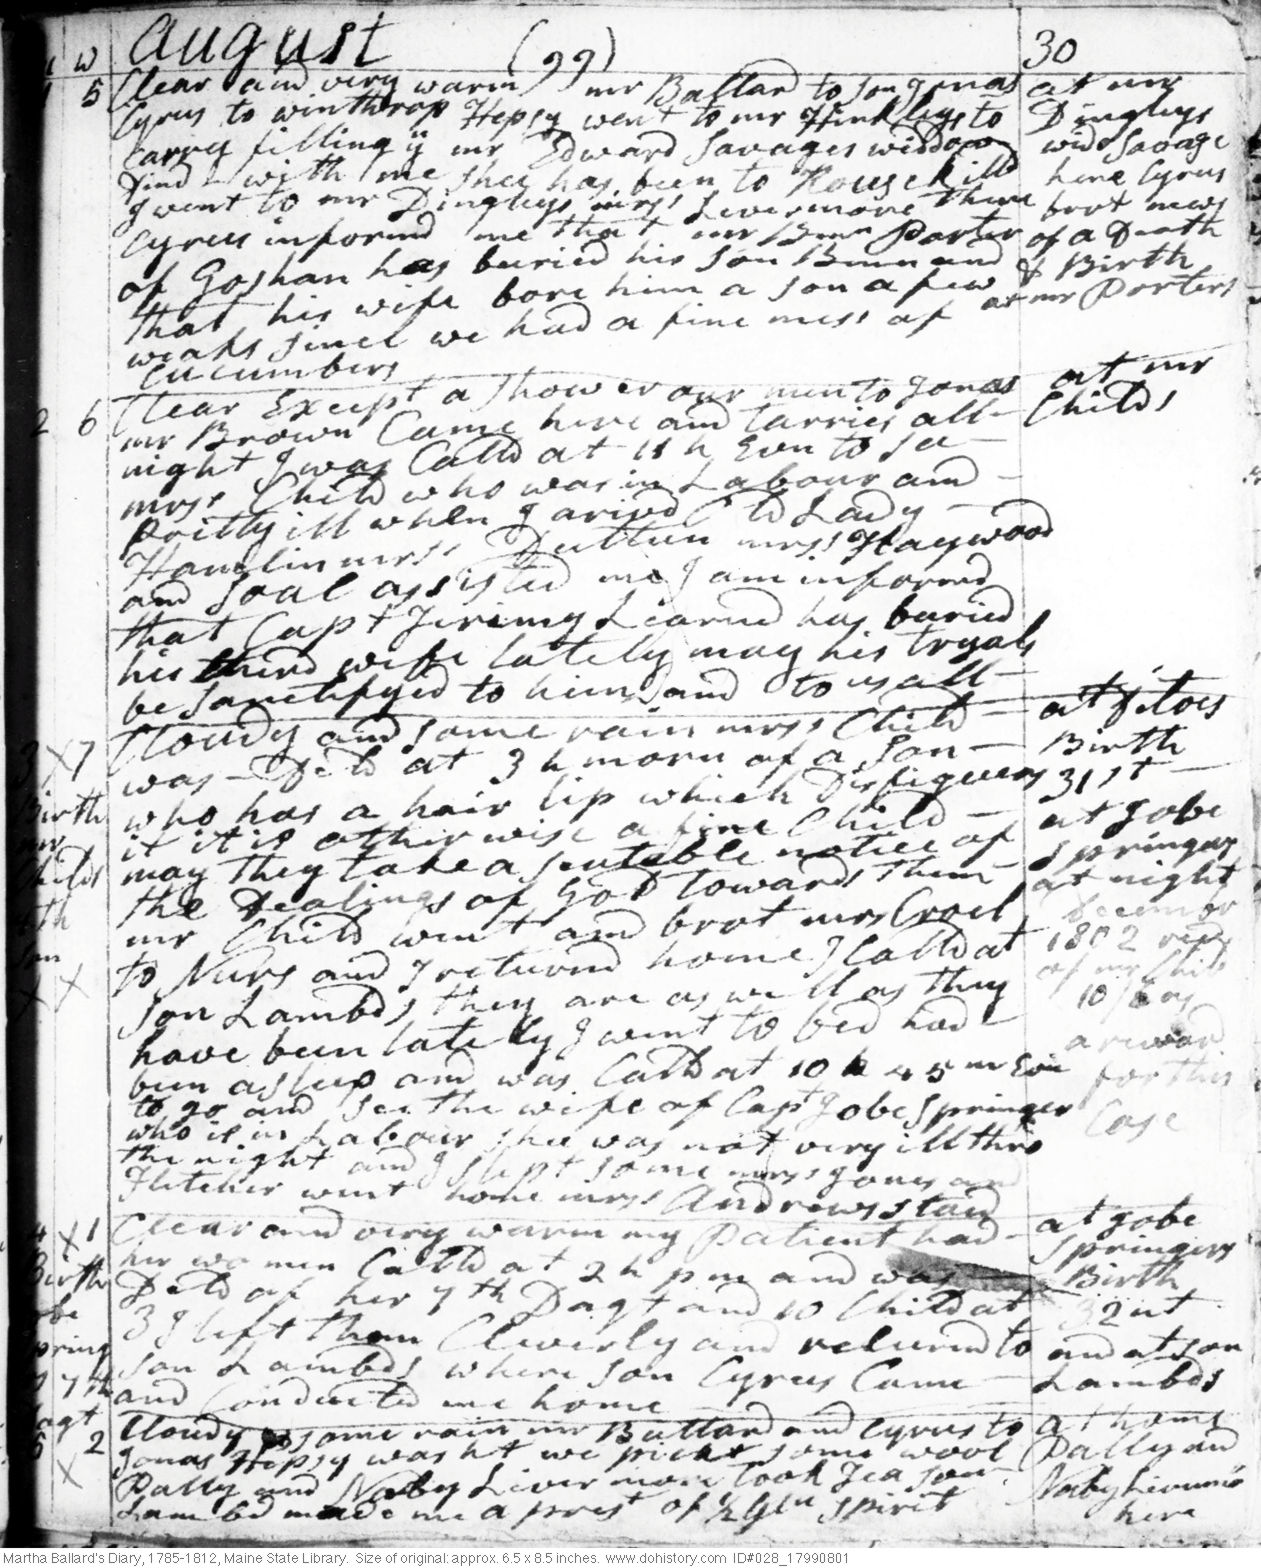 August (99) 30
1 5 Clear and very warm mr Ballard to son Jonas at mr
Cyrus to winthrop Hepsy went to mr Hinklys to Dingleys
carry filling mr Edward Savages widdow wid Savage
dind with me shee has been to Rouse hill here Cyrus
I went to mr Dingleys mrss Livermore there brot news
Cyrus informd me that mr Porter of a Death
of Goshan has buried his son and & Birth
that his wife bore him a son a few at mr Porters
weaks since we had a fine mess of
Cucumbers
2 6 Clear Except a Shower our men to Jonas at mr
mr Brown Came here and tarries all Childs
night I was Calld at 11 h Evn to se
mrss Child who was in Labour and
Prittly ill when I arivd Old Lady
Hamlin mrss Dutton mrss Haywood
and Soal assisted me I am informd
that Capt Jerimy Learned has buried
his third wife lately may his tryals
be Sanctifyed to him and to us all
3 x 7 Cloudy and some rain mrss Child at ditoes
was Delld at 3 h morn of a Son Birth
Birth who has a hair lip which Disfiguers 31st
mr it it is other wise a fine Child at Jobe
Childs may they take a senteble notice of Springers
4th the Dealings of God towards them at night
son mr Child went and brot mrs Crosl
x x to Nurs and I returnd home I Calld at
Son Lambds they are as well as they
have been lately I went to bed had
been asleep and was Calld at 10 h 45 m Evn
to go and see the wife of Capt Jobe Springer
who is in Labour shee was not very ill thro
the night and I slept some mrss Jones and
Fletcher went home mrss Andrews staid
December
1802 recd
of mr Chils
10/6 as
a reward
for this
Case
4 x 1 Clear and very warm my Patient had at Jobe
her women Calld at 2 h pm and was Springers
Birth Delld of her 7th Dagt and 10 Child at Birth
Jobe 3 I left them Cleverly and returnd to 32nt
Spring son Lambds where son Cyrus Came and at son
7th and Conducted me home Lambds
Dagt
5 2 Cloudy some rain mr Ballard and Cyrus to at home
Jonas Hepsy washt we pickt some wool Dally and
x Dally and Naby Livermore took Tea son Naby Livermore
Lambd made me a prest of ½ Gln spirit here
Martha Ballard's Diary, 1785-1812, Maine State Library. Size of original: approx. 6.5 x 8.5 inches. www.dohistory.com ID#028_17990801